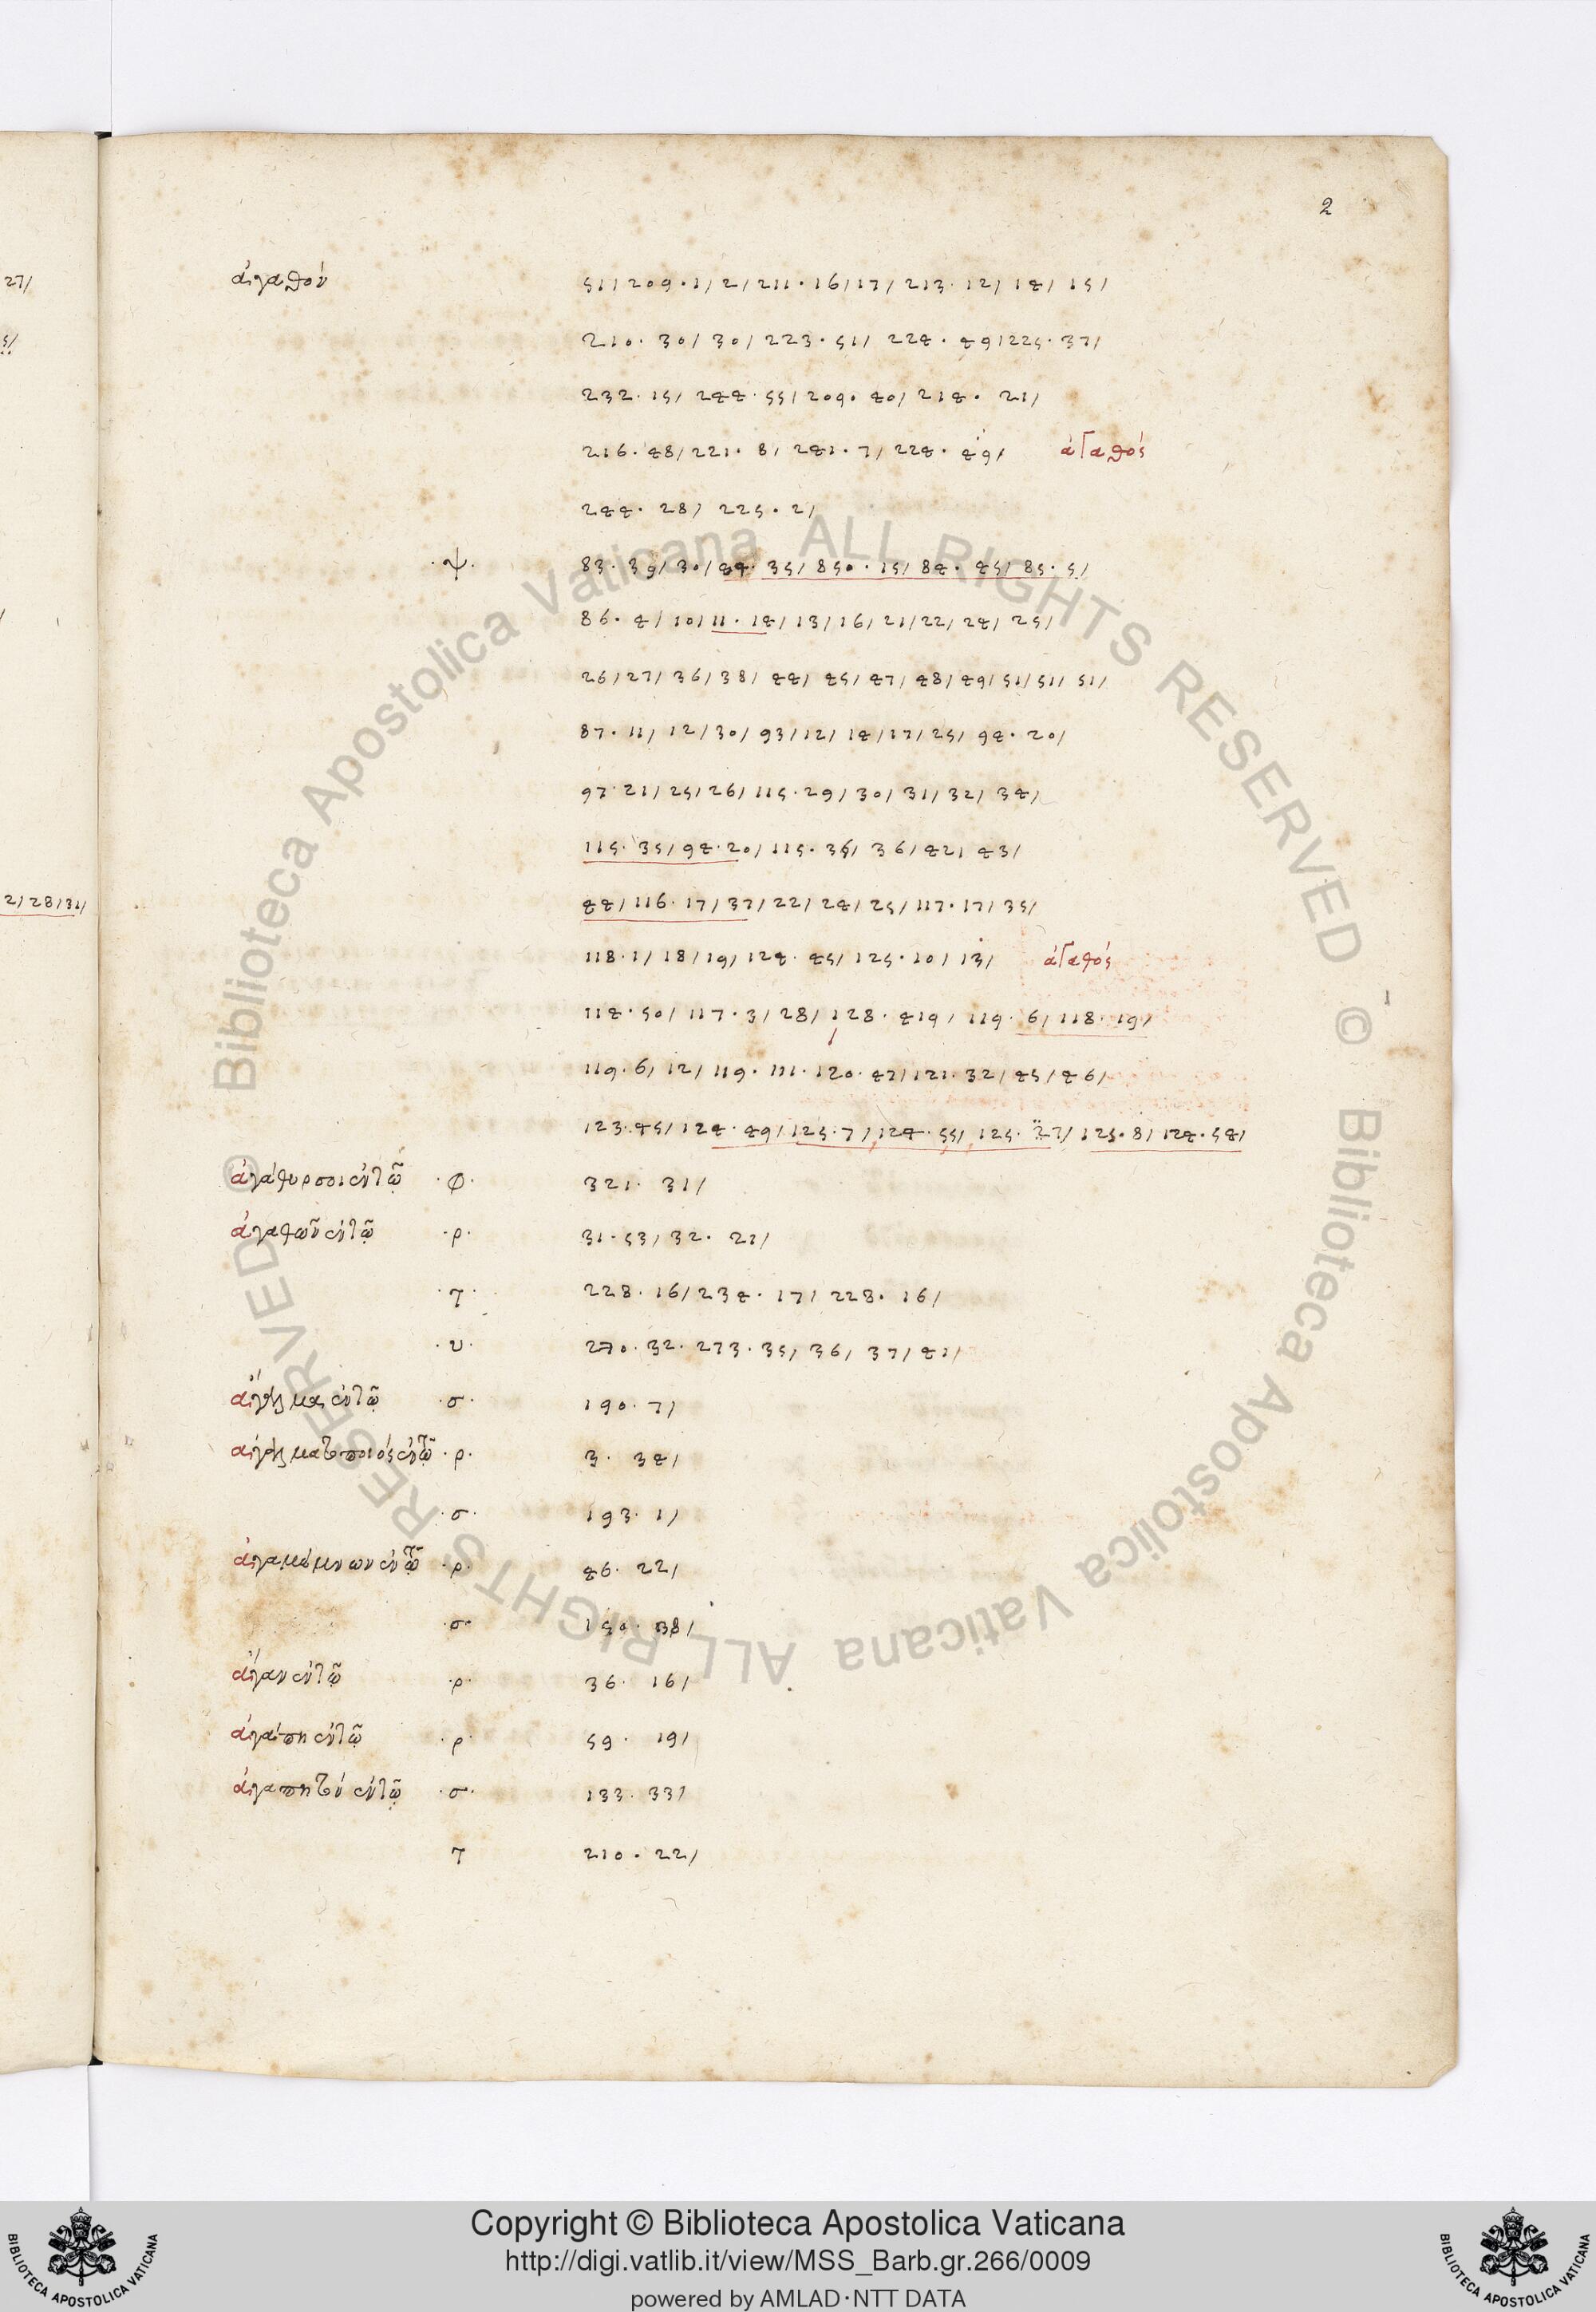 2
ἀγαθόν 51/ 209 · 1/ 2/ 211 · 16/ 17/ 213 · 12/ 14/ 15/
210 · 30/ 30/ 223 · 51/ 224 · 49/ 225 · 37/
232 · 15/ 244 · 55/ 209 · 40/ 214 · 21/
216 · 48/ 221 · 8/ 241 · 7/ 224 · 49/ ἀγαθός
244 · 28/ 225 · 2/
· ψ · 83 · 39/ 30/ 84 · 35/ 850 · 15/ 84 · 45/ 85 · 5/
86 · 4/ 10/ 11 · 14/ 13/ 16/ 21/ 22/ 24/ 25/
26/ 27/ 36/ 38/ 44/ 45/ 47/ 48/ 49/ 51/ 51/ 51/
87 · 11/ 12/ 30/ 93/ 12/ 14/ 17/ 25/ 94 · 20/
97 · 21/ 25/ 26/ 115 · 29/ 30/ 31/ 32/ 34/
115 · 35/ 94 · 20/ 115 · 35/ 36/ 42/ 43/
44/ 116 · 17/ 37/ 22/ 24/ 25/ 117 · 17/ 35/
118 · 1/ 18/ 19/ 124 · 45/ 125 · 10/ 13/ ἀγαθός
114 · 50/ 117 · 3/ 28/ 128 · 419/ 119 · 6/ 118 · 19/
119 · 6/ 12/ 119 · 111 · 120 · 47/ 121 · 32/ 45/ 46/
123 · 45/ 124 · 49/ 125 · 7/ 124 · 55/ 125 · 27/ 125 · 8/ 124 · 54/
ἀγάθυρσοι ἐν τῷ · φ · 321 · 31/
ἀγαθῶν ἐν τῷ · ρ · 31 · 53/ 32 · 21/
· τ · 228 · 16/ 234 · 17/ 228 · 16/
· υ · 270 · 32 · 273 · 35/ 36/ 37/ 41/
ἄγαλμα ἐν τῷ · σ · 190 · 7/
ἀγαλματοποιός ἐν τῷ · ρ · 3 · 34/
· σ · 193 · 1/
ἀγαμέμνων ἐν τῷ · ρ · 46 · 22/
· σ · 150 · 38/
ἄγαν ἐν τῷ · ρ · 36 · 16/
ἀγάπη ἐν τῷ · ρ · 59 · 19/
ἀγαπητόν ἐν τῷ · σ · 133 · 33/
τ 210 · 22/
27/
5/
2/ 28/ 31/
© Biblioteca Apostolica Vaticana ALL RIGHTS RESERVED © Biblioteca Apostolica Vaticana ALL RIGHTS RESERVED
Copyright © Biblioteca Apostolica Vaticana
http://digi.vatlib.it/view/MSS_Barb.gr.266/0009
powered by AMLAD·NTT DATA
BIBLIOTECA APOSTOLICA VATICANA
BIBLIOTECA APOSTOLICA VATICANA